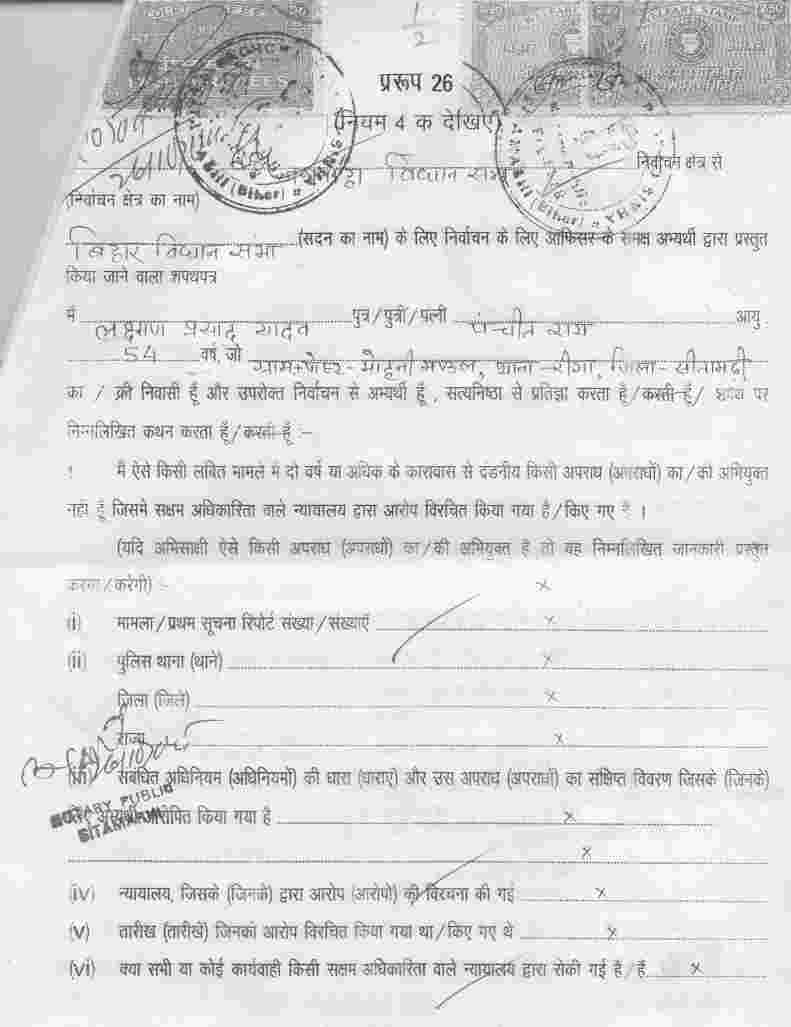 1/2
प्ररूप 26
(नियम 4 क देखिए)
विधान सभा निर्वाचन क्षेत्र से
(निर्वाचन क्षेत्र का नाम)
बिहार विधान सभा (सदन का नाम) के लिए निर्वाचन के लिए आफिसर के समक्ष अभ्यर्थी द्वारा प्रस्तुत
किया जाने वाला शपथपत्र
मैं लक्ष्मण प्रसाद यादव पुत्र/पुत्री/पत्नी आयु
54 वर्ष, जो ग्राम+पोस्ट- मण्डल, थाना-रीगा, जिला-सीतामढ़ी
का / की निवासी हूँ और उपरोक्त निर्वाचन से अभ्यर्थी हूँ, सत्यनिष्ठा से प्रतिज्ञा करता हूँ/करती हूँ/ शपथ पर
निम्नलिखित कथन करता हूँ/करती हूँ :-
1 मैं ऐसे किसी लंबित मामले में दो वर्ष या अधिक के कारावास से दंडनीय किसी अपराध (अपराधों) का/की अभियुक्त
नहीं हूँ जिसमे सक्षम अधिकारिता वाले न्यायालय द्वारा आरोप विरचित किया गया है/किए गए है ।
(यदि अभिसाक्षी ऐसे किसी अपराध (अपराधों) का/की अभियुक्त है तो वह निम्नलिखित जानकारी प्रस्तुत
करेगा/करेगी) :- x
(i) मामला/प्रथम सूचना रिपोर्ट संख्या/संख्याएँ x
(ii) पुलिस थाना (थाने) x
जिला (जिले) x
राज्य x
संबंधित अधिनियम (अधिनियमों) की धारा (धाराएं) और उस अपराध (अपराधों) का संक्षिप्त विवरण जिसके (जिनके)
NOTARY PUBLIC
SITAMARHI
अभ्यर्थी आरोपित किया गया है x
x
(iv) न्यायालय, जिसके (जिनके) द्वारा आरोप (आरोपो) की विरचना की गई x
(v) तारीख (तारीखें) जिनको आरोप विरचित किया गया था/किए गए थे x
(vi) क्या सभी या कोई कार्यवाही किसी सक्षम अधिकारिता वाले न्यायालय द्वारा रोकी गई है/हैं x